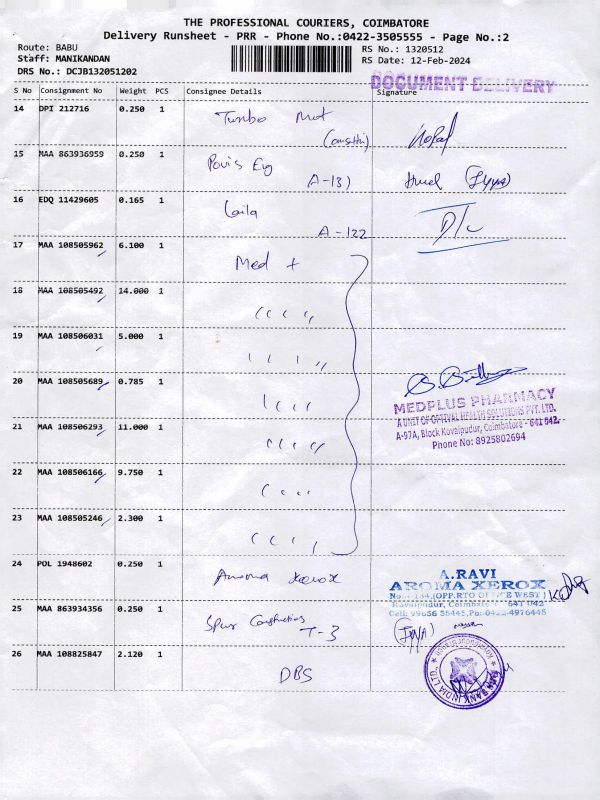 THE PROFESSIONAL COURIERS, COIMBATORE
Delivery Runsheet - PRR - Phone No.:0422-3505555 - Page No.:2
Route: BABU
RS No.: 1320512
Staff: MANIKANDAN
RS Date: 12-Feb-2024
DRS No.: DCJB132051202
DOCUMENT DELIVERY
S No Consignment No Weight PCS Consignee Details Signature
14 DPI 212716 0.250 1 Turbo Mot
15 MAA 863936959 0.250 1 Eng
A-131
16 EDQ 11429605 0.165 1 Laila D/C
A-122
17 MAA 108505962 6.100 1 Med +
18 MAA 108505492 14.000 1
19 MAA 108506031 5.000 1
20 MAA 108505689 0.785 1
MEDPLUS PHARMACY
A UNIT OF OPTIVAL HEALTH SOLUTIONS PVT. LTD.
A-97A, Block Kovaipudur, Coimbatore - 641 042.
Phone No: 8925802694
21 MAA 108506293 11.000 1
22 MAA 108506166 9.750 1
23 MAA 108505246 2.300 1
24 POL 1948602 0.250 1 Aroma Xerox
A.RAVI
AROMA XEROX
(OPP.RTO OFFICE WEST)
Kovaipudur, Coimbatore - 641 042
Cell: 99656 55445, Ph:0422-4976445
25 MAA 863934356 0.250 1 Constructions
T-3
26 MAA 108825847 2.120 1 DBS
BANK INDIA LTD.